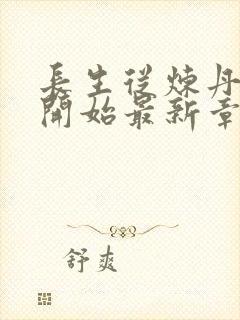 長生從煉丹
開始最新章
舒爽